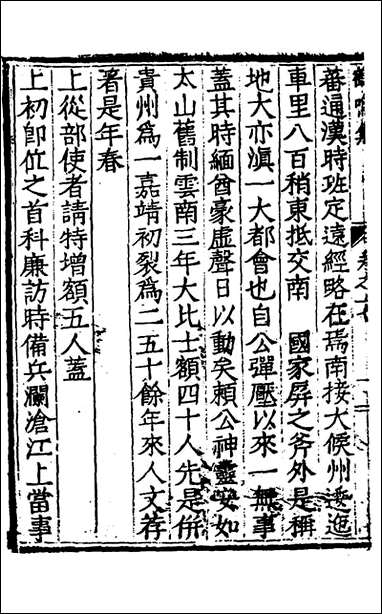 蕃通漢時班定遠經略在焉南接大候州逶迤
車里八百稍東抵交南　國家屏之斧外是稱
地大亦滇一大都會也自公彈壓以來一無事
蓋其時緬酋豪虛聲日以動矣頼公神靈安如
太山舊制雲南三年大比士額四十人先是併
貴州為一嘉靖初裂為二五十餘年來人文荐
著是年春
上從部使者請特增額五人蓋
上初即位之首科廉訪時備兵瀾滄江上當事